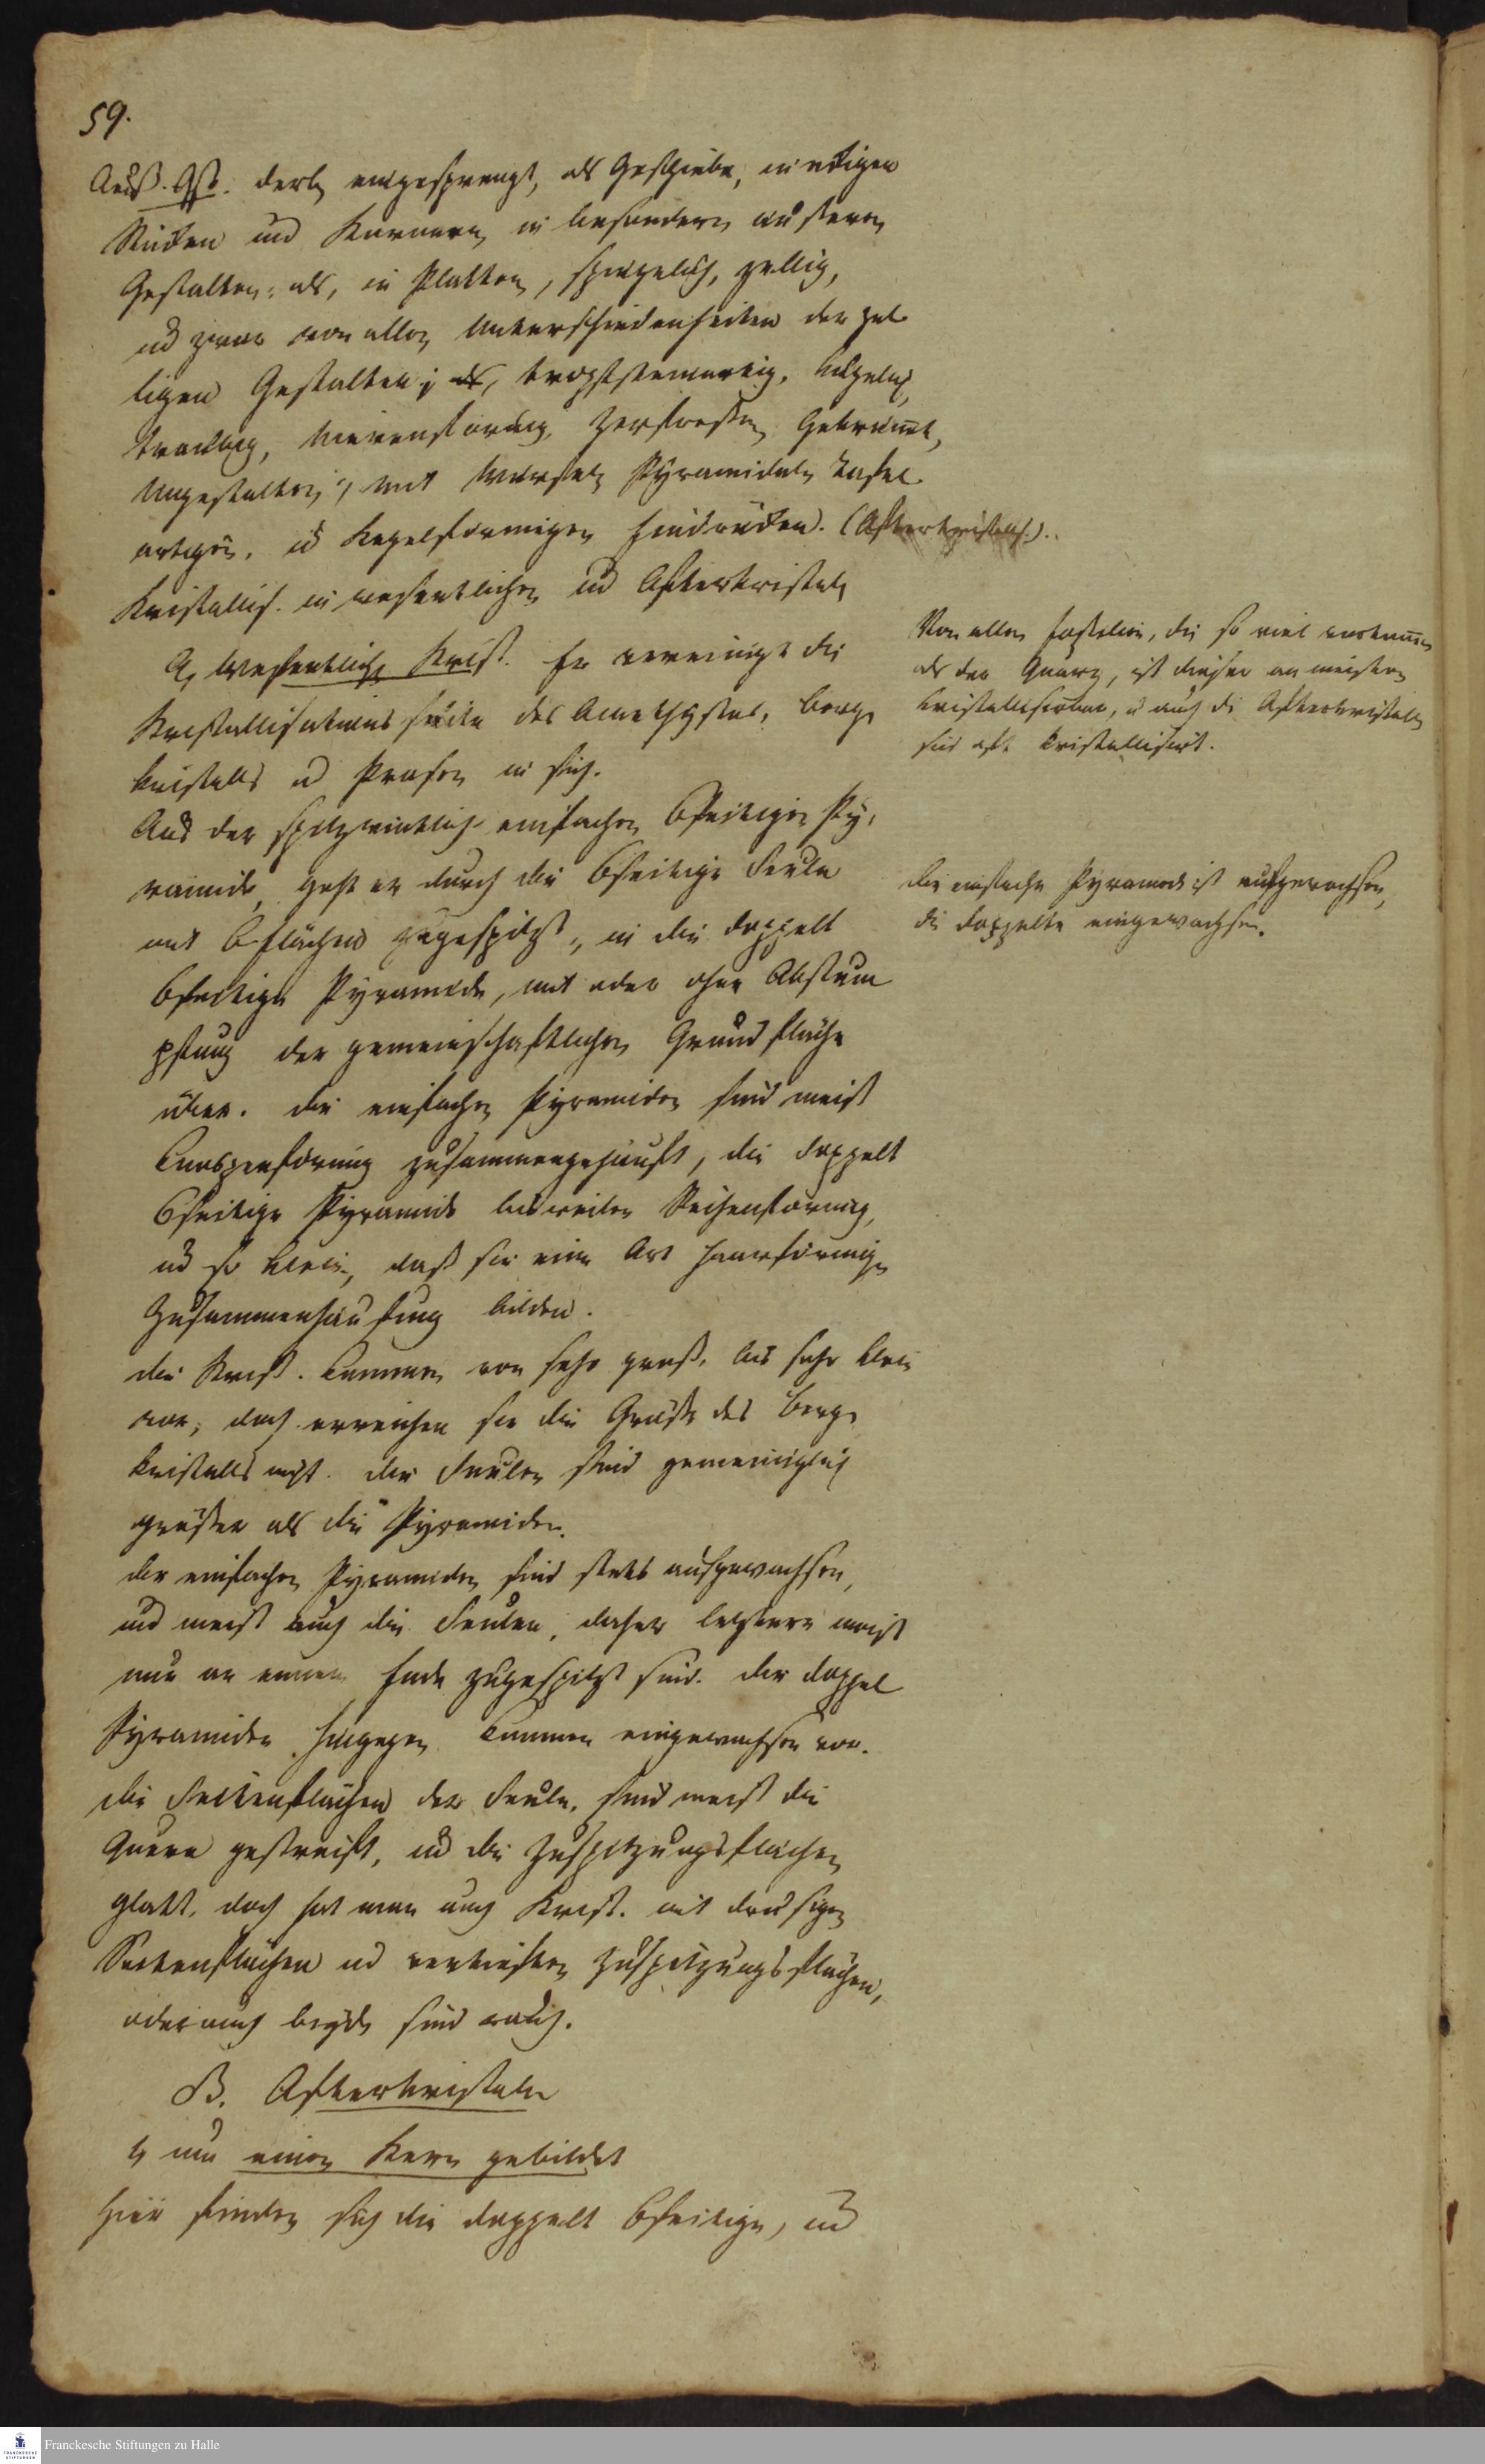 59.
Aeuß. Gst. derb, eingesprengt, als Geschiebe, in eckigen
Stücken und Körnern, in besondern äußern
Gestalten: als, in Platten, spieglich, zellig,
und zwar von allen Unterschiedenheiten der zel
ligen Gestalten; als, tropfsteinartig, kuglich,
traubig, Nierenförmig, Zerfressen, Gekrümmt,
Ungestalten, mit Würfel, Pyramidal, Tafel
artigen, und Kegelförmigen Eindrücken. (Afterkristall.)
Kristallis. in wesentlichen und Afterkristaln
A, Wesentliche Krist. Er vereinigt die
Kristallisations suite des Amethystes, Berg
kristalls und Prasen in sich.
Aus der spitzwinklich einfachen 6seitigen Py,
ramide, geht er durch die 6seitige Seule
mit 6 flächen zugespitzt, in die doppelt
6seitige Pyramide, mit oder ohne Abstum
pfung der gemeinschaftlichen Grundfläche
über. Die einfachen Pyramiden sind meist
knospenförmig zusammengehäuft, die doppelt
6seitige Pyramide bisweilen Reihenförmig,
und so klein, daß sie eine Art haarförmige
Zusammenhäufung bilden.
die Krist. kommen von sehr groß, bis sehr klein
vor; doch erreichen sie die Größe des Berg
kristalls nicht. Die Seulen sind gemeiniglich
größer als die Pyramiden.
der einfachen Pyramiden sind stets aufgewachsen,
und meist auch die Seulen, daher letztere meist
nur an einem Ende zugespitzt sind. Der doppel
Pyramiden hingegen kommen eingewachsen vor.
die Seitenflächen der Seule, sind meist die
Quere gestreift, und die Zuspitzungsflächen
glatt, doch hat man auch Krist. mit drusigen
Seitenflächen und vertieften Zuspitzungsflächen,
oder auch beyde sind rauh.
B. Afterkristaln
um einen Kern gebildet
hier finden sich die doppelt 6seitige, und
Von allen Foßilien, die so viel vorkommen
als der Quarz, ist dieser am meisten
kristallisirbar, u auch die Afterkristalle
sind oft kristallisirt.
die einfache Pyramide ist aufgewachsen,
die doppelte eingewachsen.
Franckesche Stiftungen zu Halle